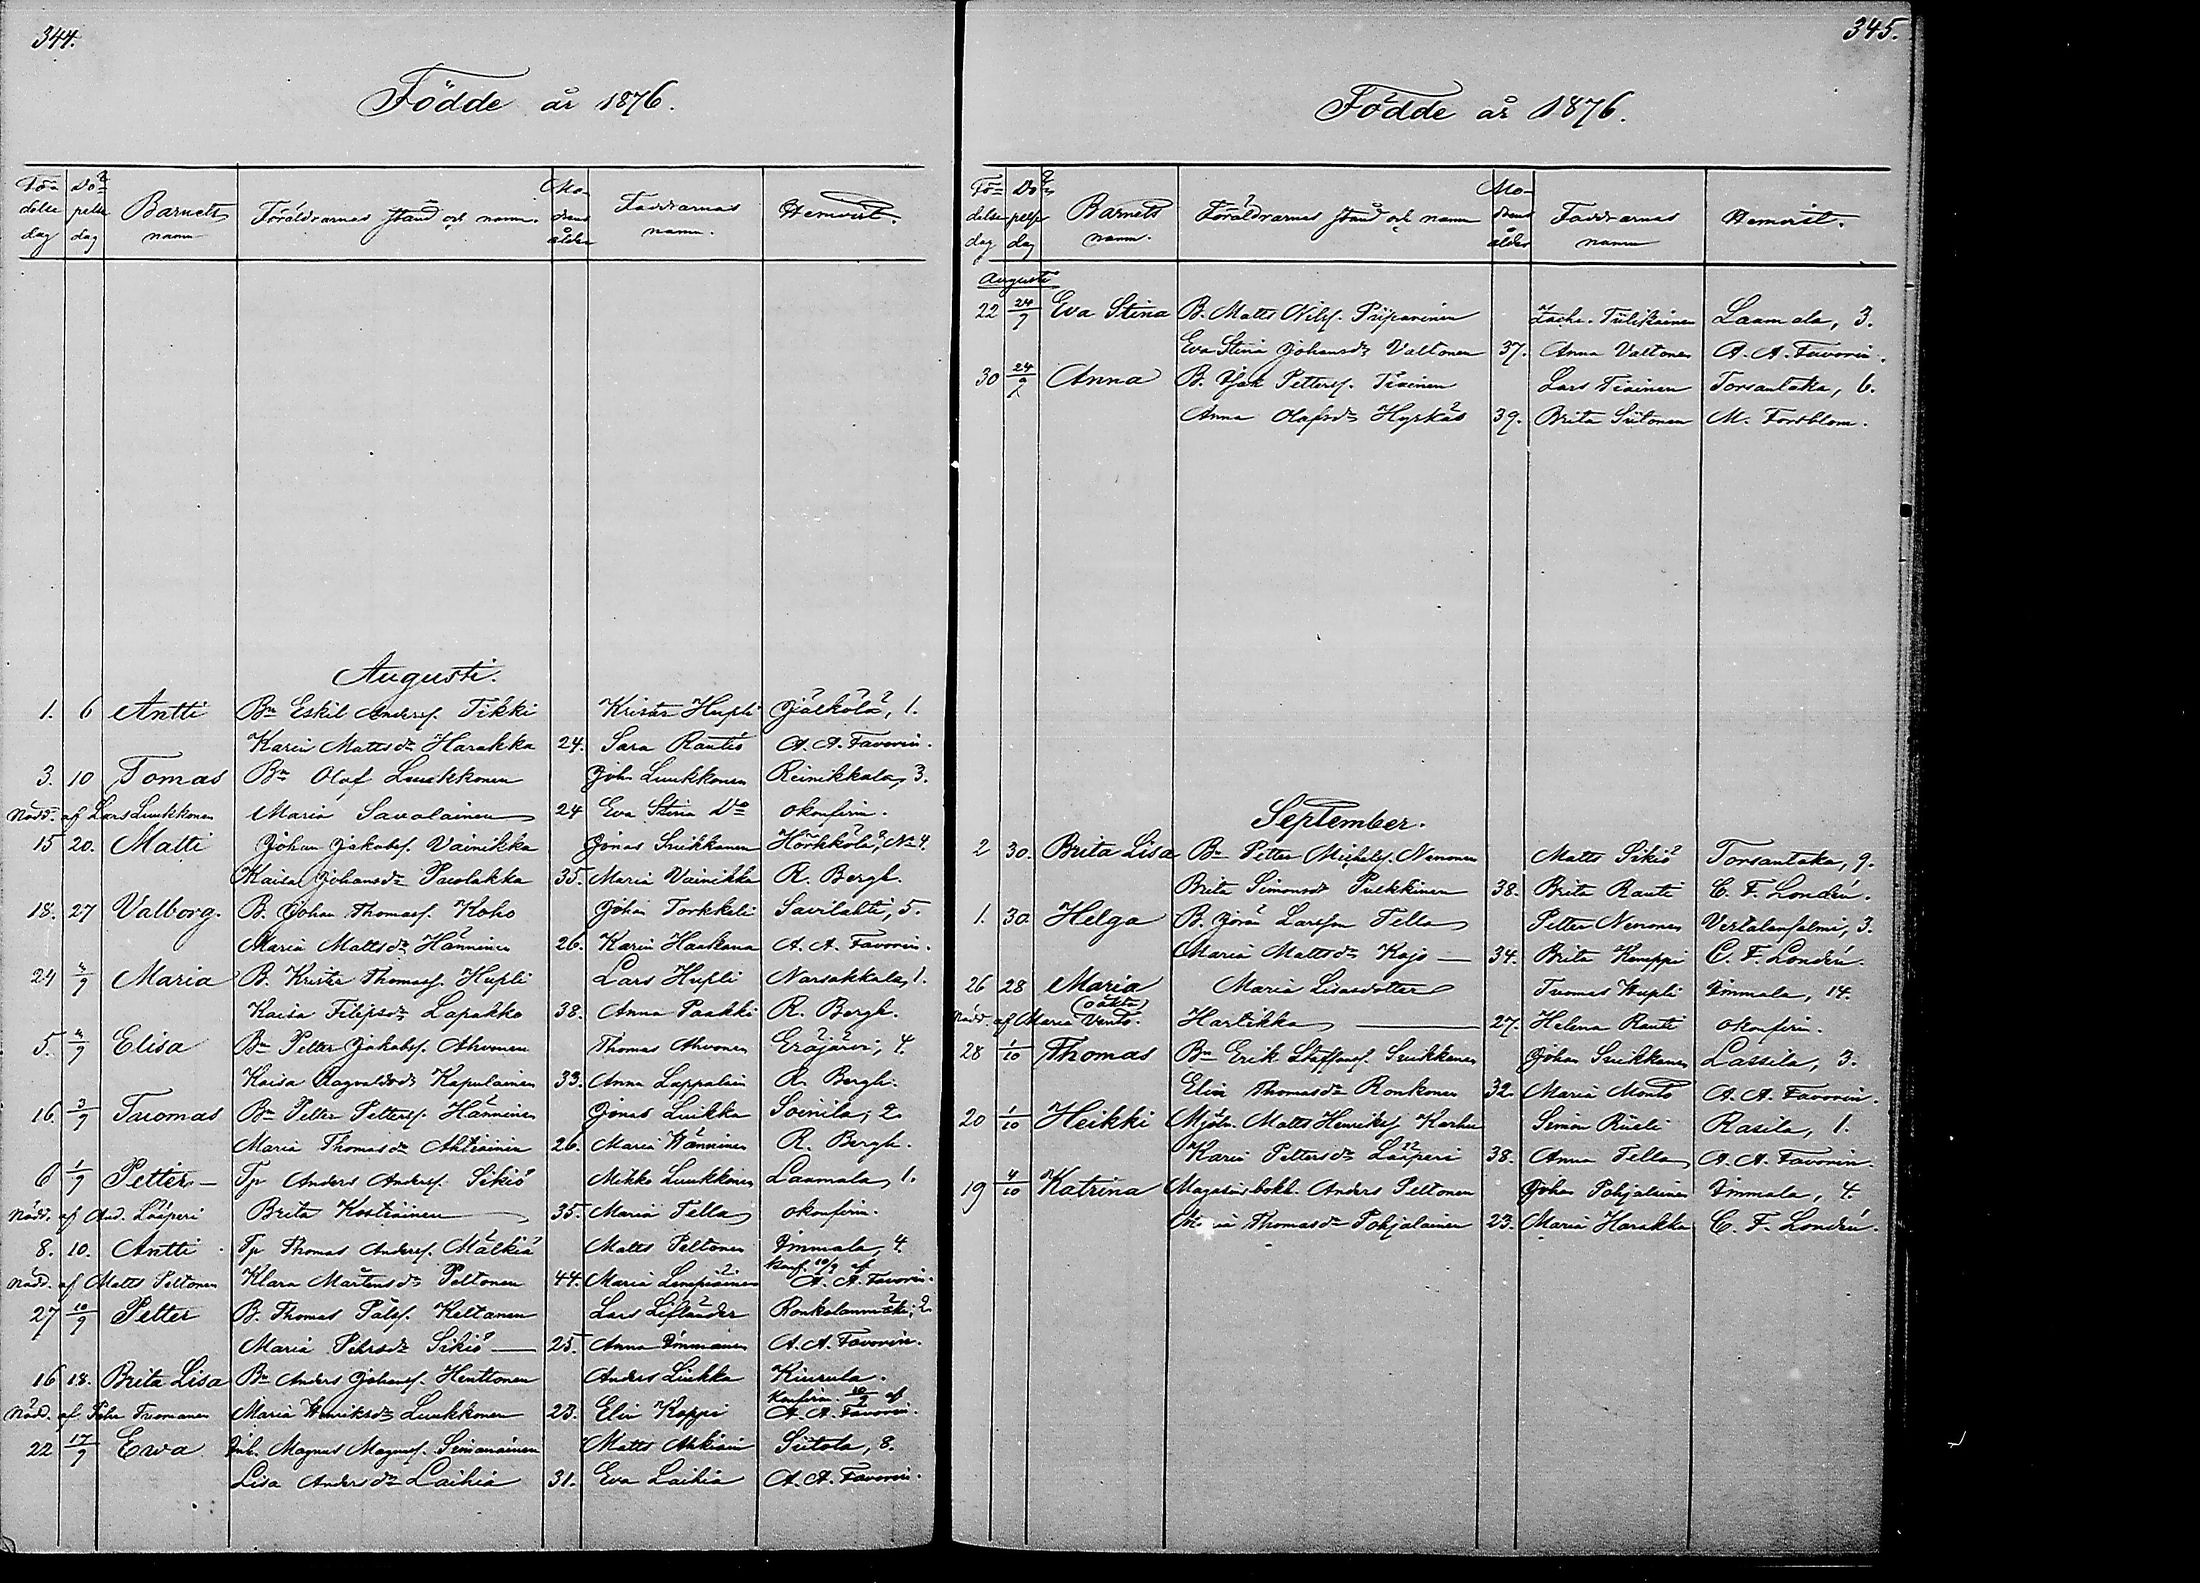 344.
Födde år 1876.
Fö= delse dag
Dö= pelse dag
Barnets namn
Föräldrarnas stånd och namn.
Mo- drens ålder
Faddrarnas namn.
Hemvist.
Augusti.
1. 6 Antti Bn Eskil Andersf. Tikki Krister Hupli Jälkölä, 1.
Karin Mattsdr Harakka 24. Sara Rantis A. A. Favorin.
3. 10 Tomas Bn Olof Luukkonen Joh. Luukkonen Reinikkala, 3.
Nödd. af Lars Luukkonen Maria Savolainen 24 Eva Stina Do okonfirm.
15 20. Matti Johan Jakobsf. Vainikka Jonas Suikkanen Hörkkölä, No 4.
Kaisa Johansdr Pacolakka 35. Maria Vainikka R. Bergh.
18. 27 Valborg. B. Johan Thomasf. Koho Johan Torkkeli Savilahti, 5.
Maria Mattsdr Hänninen 26. Karin Haakana A. A. Favorin.
24 4/9 Maria B. Krister Thomasf. Hupli Lars Hupli Narsakkala, 1.
Kaisa Filipsdr Lapakko 38. Anna Paakki R. Bergh.
5. 4/9 Elisa Bn Petter Jakobsf. Ahvonen Thomas Ahvonen Eräjärvi, 4.
Kaisa Ragvaldsdr Kapulainen 33. Anna Lappalain R. Bergh.
16 3/9 Tuomas Bn Petter Pettersf. Hänninen Jonas Liukka Soinila, 2.
Maria Thomasdr Ahtiainen 26. Maria Hänninen R. Bergh.
6 1/9 Petter - Tp Anders Andersf. Sikiö Mikko Luukkonen Laamala, 1.
Nödd. af And. Lääperi Brita Kostiainen 35. Maria Tella okonfirm.
8. 10. Antti Tp Thomas Andersf. Mälkiä Matts Peltonen Immala, 4.
Nödd. af Matts Peltonen Klara Mårtensdr Peltonen 44. Maria Lempiäinen konf. 10/9 af A. A. Favorin.
27 10/9 Petter B. Thomas Pålsf. Keltanen Lars Lifländer Ronkalanmäki, 2.
Maria Petersdr Sikiö 25. Anna Immonen A. A. Favorin.
16 18. Brita Lisa Bn Anders Johansf. Henttonen Anders Liukka Kiurula.
Nödd. af Petr Tuomanen Maria Henriksdr Luukkonen 23. Elin Kappi Konfirm. 10/9 af A. A. Favorin.
22 17/9 Ewa Inh. Magnus Magnusf. Simanainen Matts Ahkiain Siitola, 8.
Lisa Andersdr Laihia 31. Eva Laihia A. A. Favorin.
345.
Födde år 1876.
Fö= delse dag
Dö= pelse dag
Barnets namn.
Föräldrarnas stånd och namn
Mo- drens ålder
Faddrarnas namn
Hemvist.
Augusti
22 24/9 Eva Stina B. Matts Nilsf. Piiparinen Zachr. Tiilikainen Laamala, 3.
Eva Stina Johansdr Valtonen 37. Anna Valtonen A. A. Favorin.
30 24/9 Anna B. Isak Pettersf. Tiainen Lars Tiainen Torsantaka, 6.
Anna Olofsdr Hyrkäs 39. Brita Siitonen M. Forsblom.
September.
2 30. Brita Lisa Bn Petter Michelsf. Nenonen Matts Sikiö Torsantaka, 9.
Brita Simonsdr Pulkkinen 38. Brita Rauti C. F. Londén.
1. 30. Helga B. Jöran Larsson Tella Petter Nenonen Virtalansalmi, 3.
Maria Mattsdr Kojo 34. Brita Kemppi C. F. Londén.
26 28 Maria (oäkta) Maria Lisasdotter Tuomas Hupli Immala, 14.
Nödd. af Maria Vento. Hartikka 27. Helena Rauti okonfirm.
28 1/10 Thomas Bn Erik Staffansf. Suikkanen Johan Suikkanen Lassila, 3.
Elin Thomasdr Ronkonen 32. Maria Monto A. A. Favorin.
20 1/10 Heikki Mjöln. Matts Henriksf. Karhu Simon Rusli Rasila, 1.
Karin Pettersdr Lääperi 38. Anna Tella A. A. Favorin.
19 4/10 Katrina Magasinsbokh. Anders Peltonen Johan Pohjalainen Immala, 4.
Maria Thomasdr Pohjalainen 23. Maria Harakka C. F. Londén.